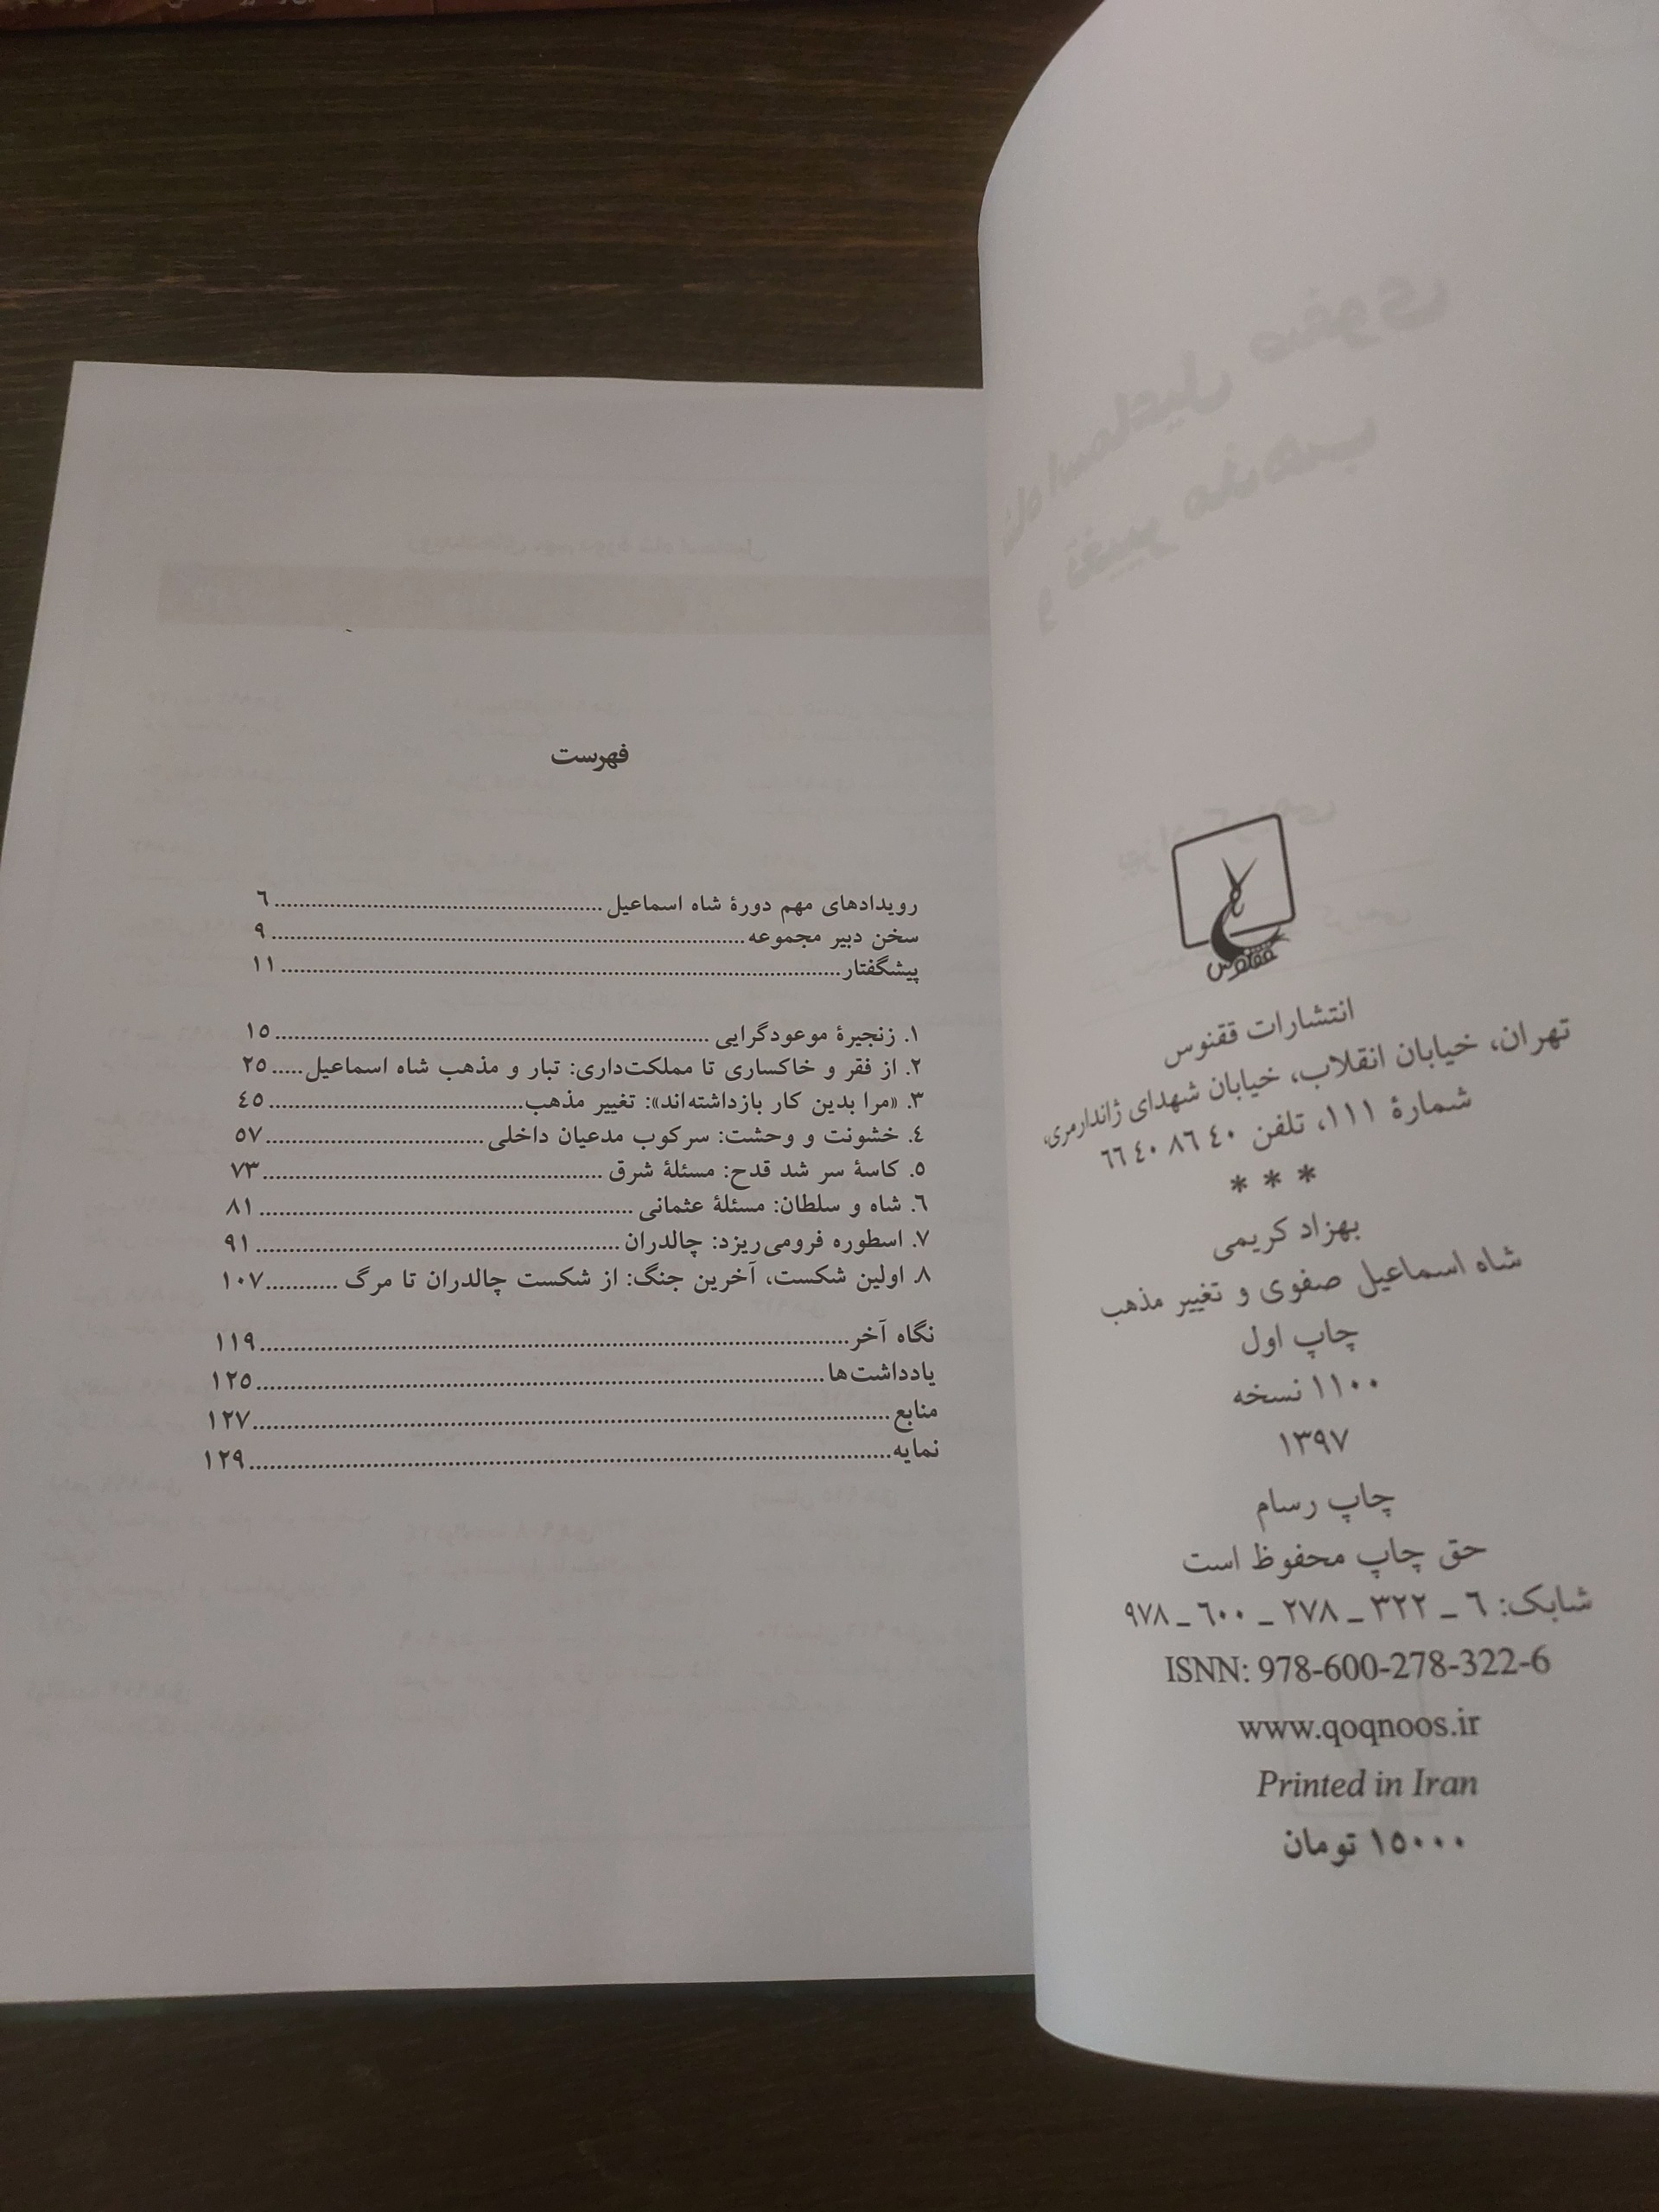 ققنوس
انتشارات ققنوس
تهران، خیابان انقلاب، خیابان شهدای ژاندارمری،
شمارهٔ ۱۱۱، تلفن ۴۰ ۸۶ ۴۰ ۶۶
* * *
بهزاد کریمی
شاه اسماعیل صفوی و تغییر مذهب
چاپ اول
۱۱۰۰ نسخه
۱۳۹۷
چاپ رسام
حق چاپ محفوظ است
شابک: ۶ _ ۳۲۲ _ ۲۷۸ _ ۶۰۰ _ ۹۷۸
ISNN: 978-600-278-322-6
www.qoqnoos.ir
Printed in Iran
۱۵۰۰۰ تومان
فهرست
رویدادهای مهم دورهٔ شاه اسماعیل ........ ۶
سخن دبیر مجموعه ........ ۹
پیشگفتار ........ ۱۱
۱. زنجیرهٔ موعودگرایی ........ ۱۵
۲. از فقر و خاکساری تا مملکت‌داری: تبار و مذهب شاه اسماعیل ..... ۲۵
۳. «مرا بدین کار بازداشته‌اند»: تغییر مذهب ........ ۴۵
۴. خشونت و وحشت: سرکوب مدعیان داخلی ........ ۵۷
۵. کاسهٔ سر شد قدح: مسئلهٔ شرق ........ ۷۳
۶. شاه و سلطان: مسئلهٔ عثمانی ........ ۸۱
۷. اسطوره فرومی‌ریزد: چالدران ........ ۹۱
۸. اولین شکست، آخرین جنگ: از شکست چالدران تا مرگ ........ ۱۰۷
نگاه آخر ........ ۱۱۹
یادداشت‌ها ........ ۱۲۵
منابع ........ ۱۲۷
نمایه ........ ۱۲۹